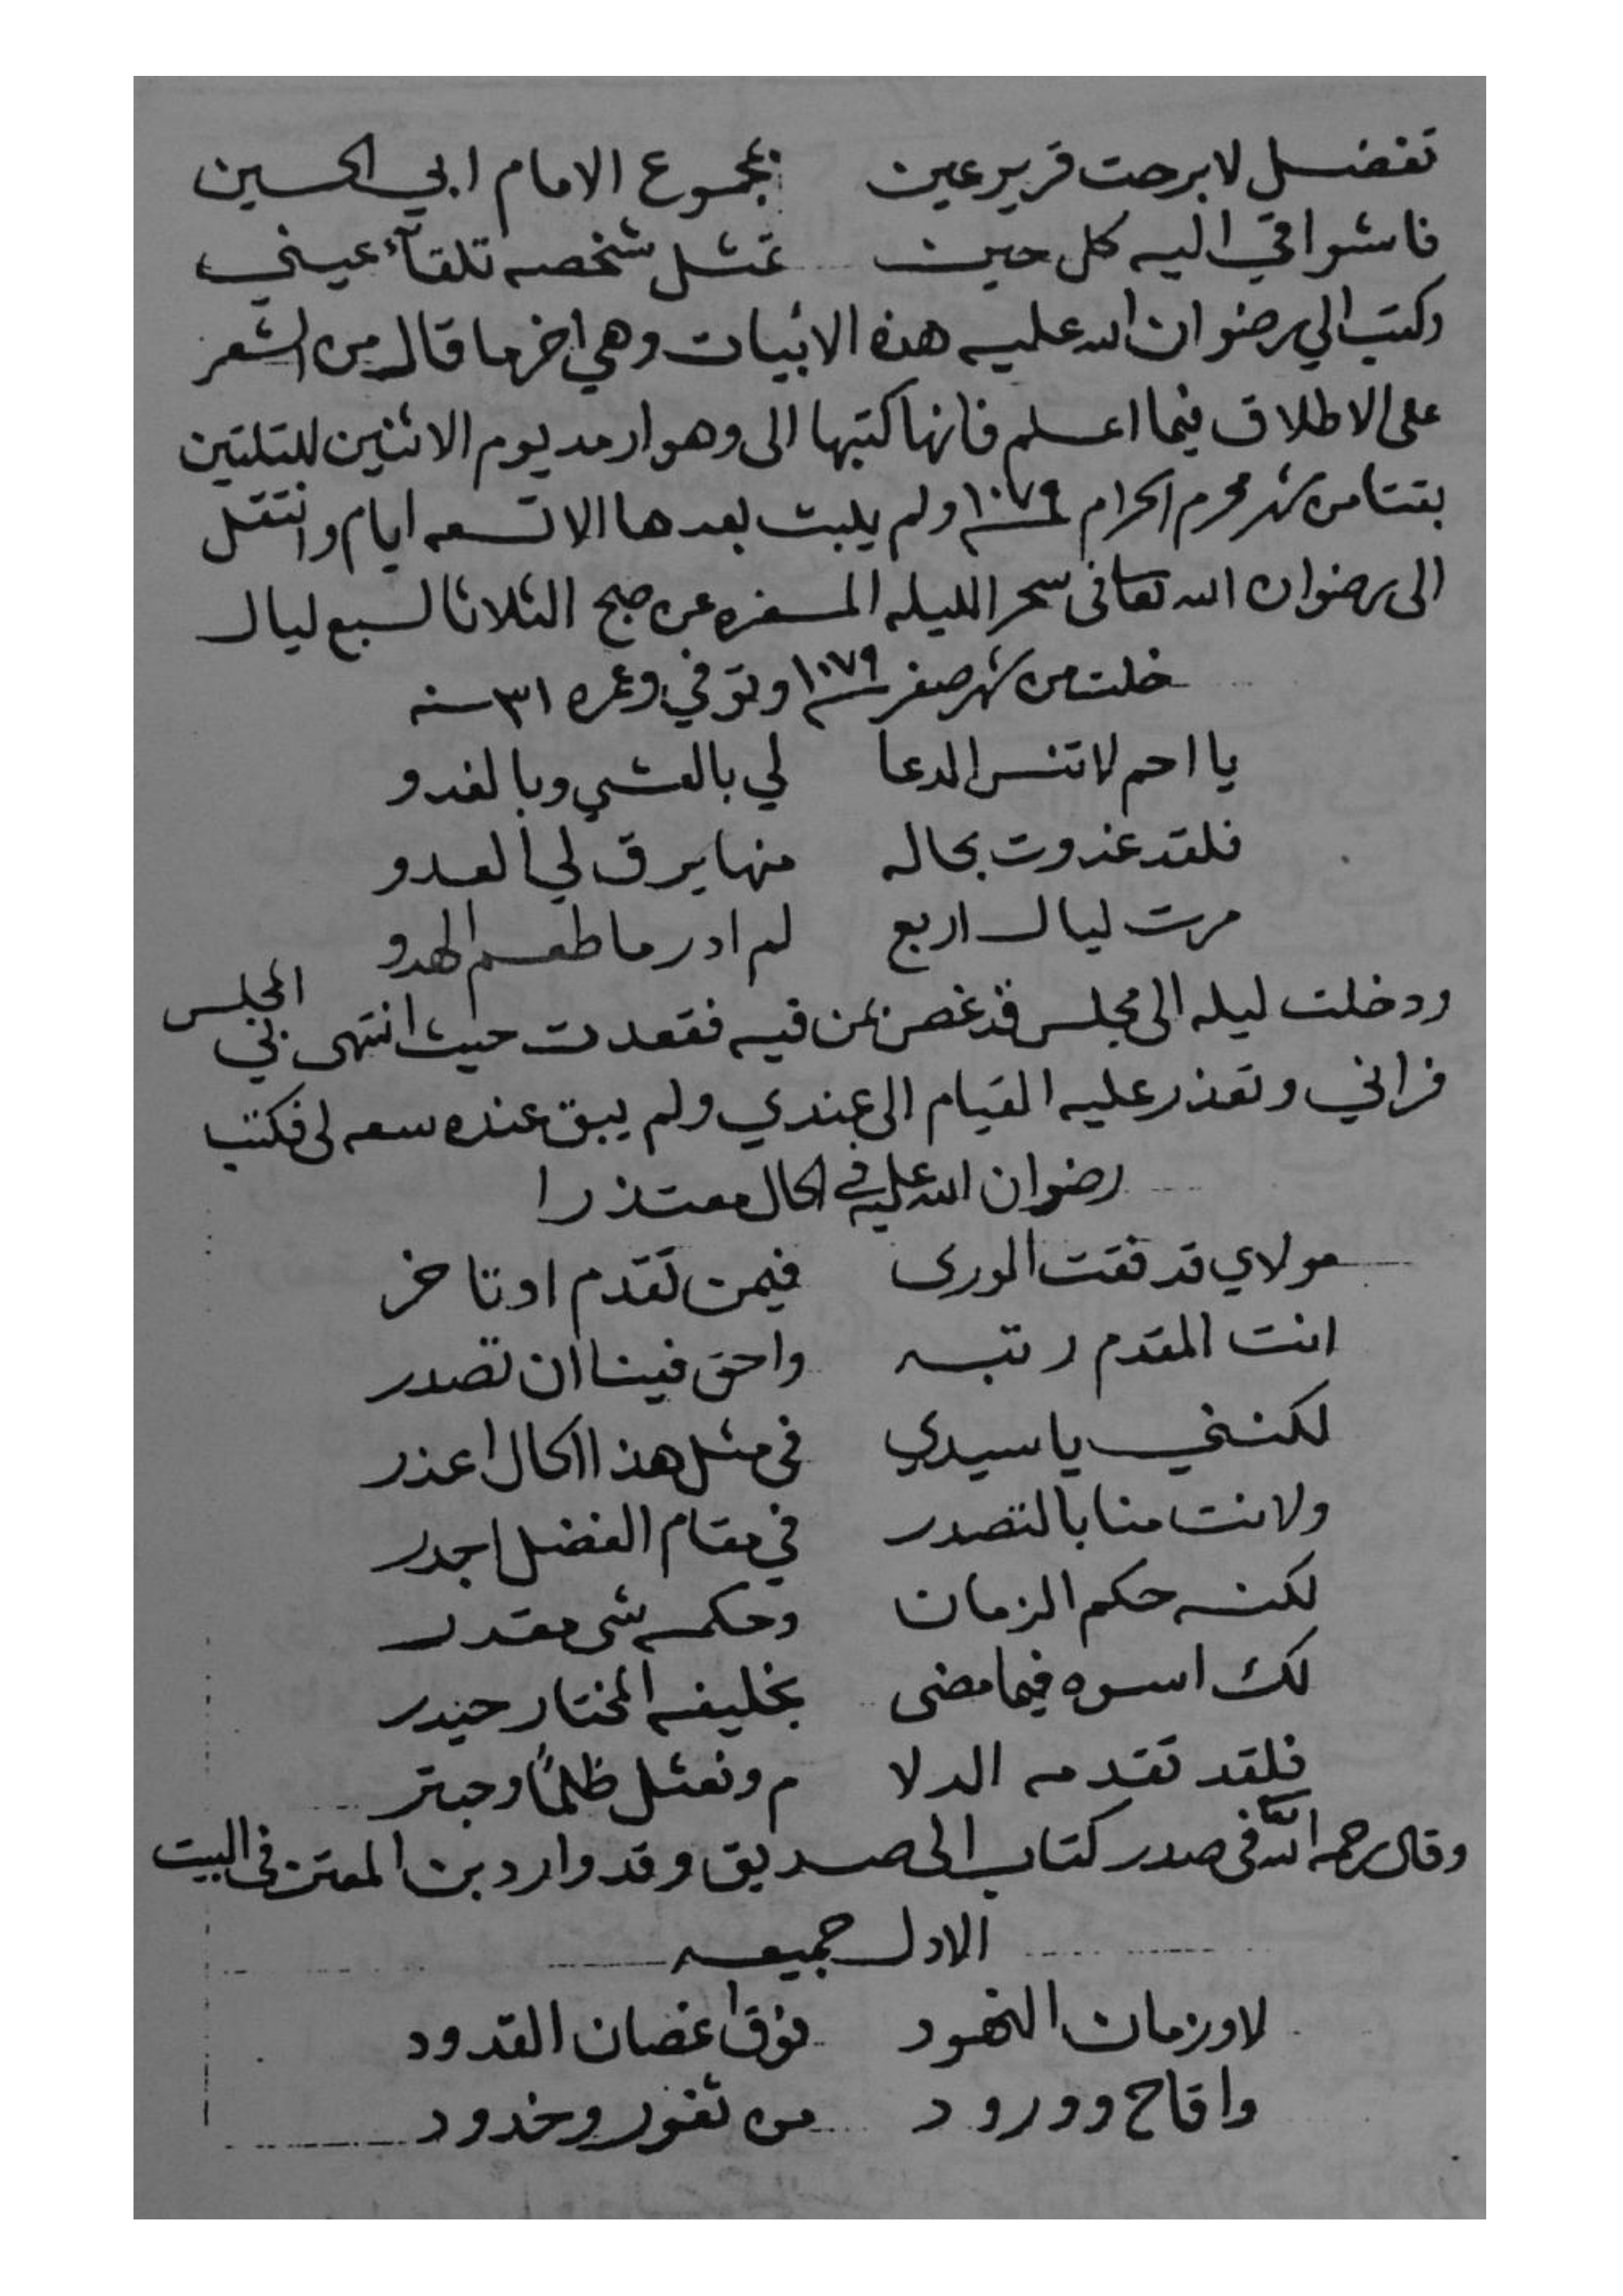 تفضل لا برحت قرير عين بمجموع الامام ابي الحسين
فاشواقي اليه كل حين تمثل شخصه تلقآء عيني
وكتب الي رضوان الله عليه هذه الابيات وهي اخر ما قال من الشعر
على الاطلاق فيما اعلم فانها كتبها الى وهو ارمد يوم الاثنين لليلتين
بقتا من شهر محرم الحرام سنة ١٠٧٩ ولم يلبث بعدها الا تسعه ايام وانتقل
الى رضوان الله تعالى سحر الليله المسفره عن صبح الثلاثا لسبع ليال
خلت من شهر صفر سنة ١٠٧٩ وتوفي وعمره ٣١ سنه
يا احم لا تنس الدعا لي بالعشي وبالغدو
فلقد غدوت بحاله منها يرق لي العدو
مرت ليال اربع لم ادر ما طعم الهدو
ودخلت ليله الى مجلس قد غص بمن فيه فقعدت حيث انتهى بي المجلس
فراني وتعذر عليه القيام الى عندي ولم يبق عنده سعه لى فكتب
رضوان الله عليه في الحال معتذرا
مولاي قد فقت الورى فيمن تقدم او تاخر
انت المقدم رتبه واحق فينا ان تصدر
لكنني يا سيدي في مثل هذا الحال اعذر
ولانت منا بالتصدر في مقام الفضل اجدر
لكنه حكم الزمان وحكمه شى مقدر
لك اسوه فيما مضى بخليفه المختار حيدر
فلقد تقدمه الدلا م ونعثل ظلمًا وحبتر
وقال رحمه الله في صدر كتاب الى صديق وقد وارد بن المعتز في البيت
الاول جميعه
لا ورمان النهود فوق اغصان القدود
واقاح وورود من ثغور وخدود